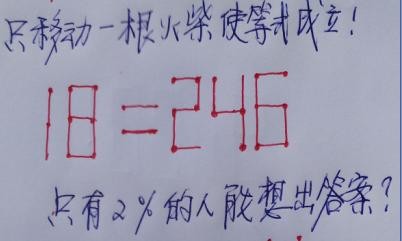 只移动一根火柴使等式成立!
18=246
只有2%的人能想出答案?